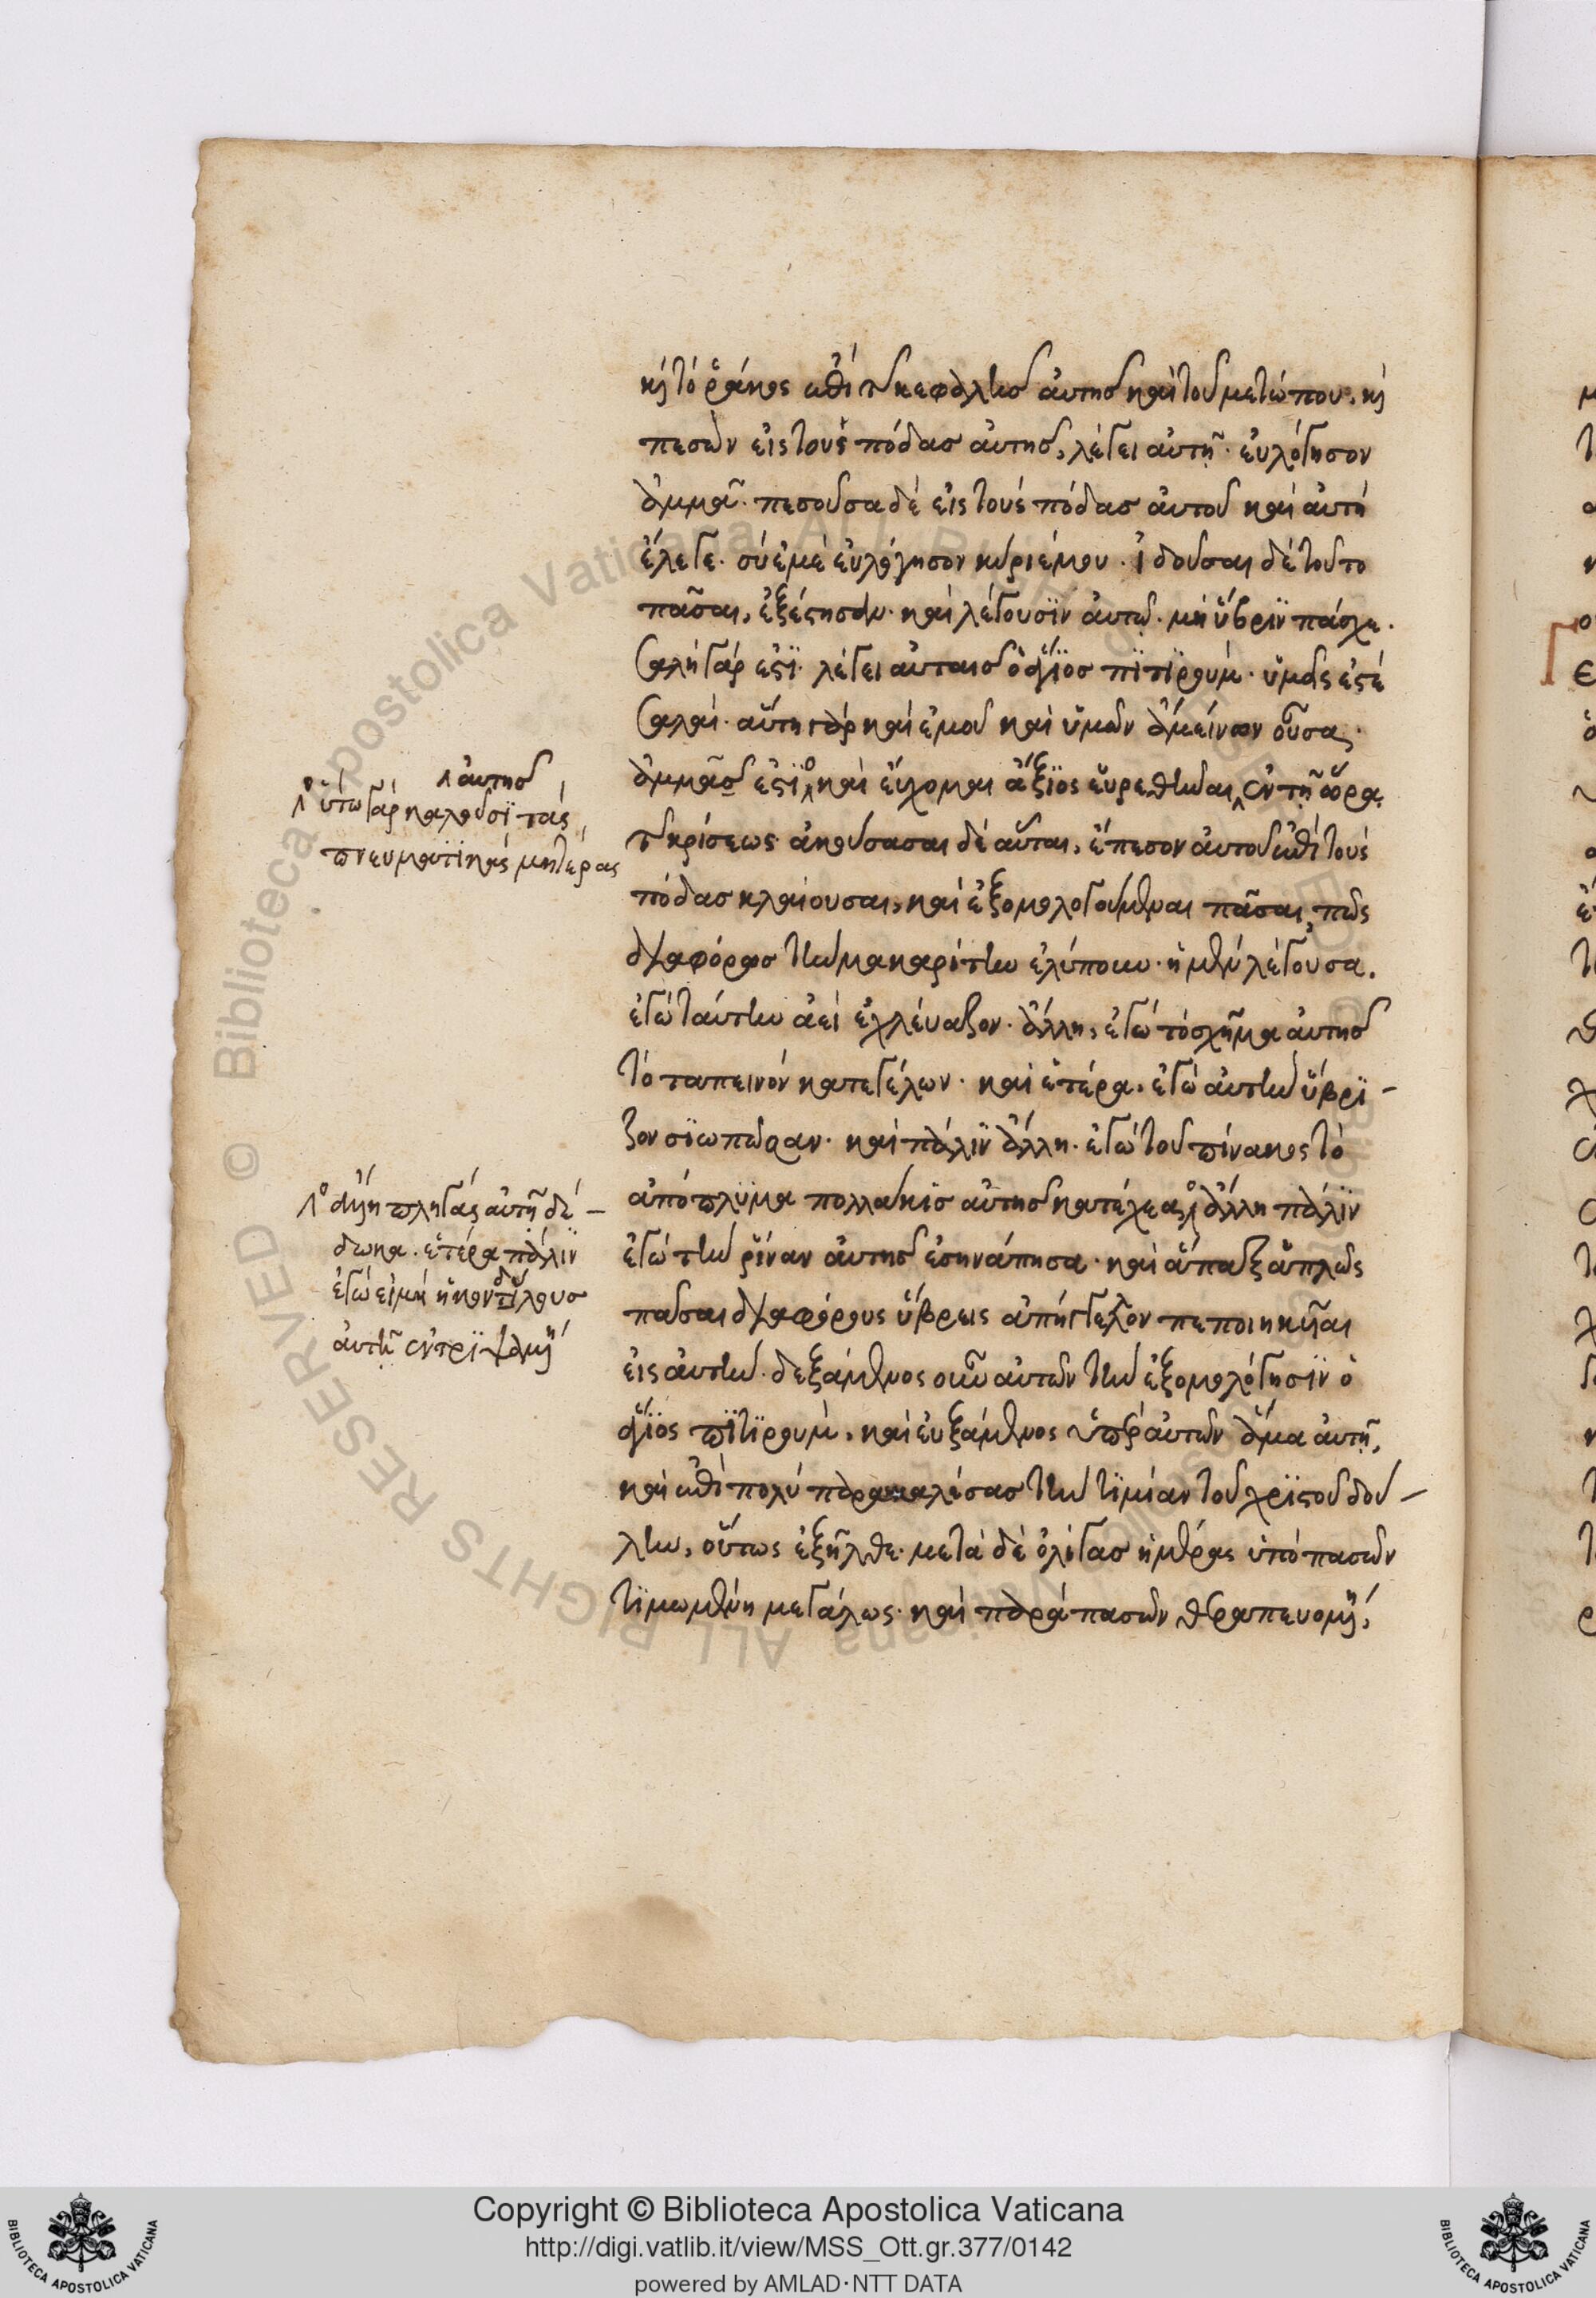 κὶ τὸ ῥάκος ἐπὶ τῆς κεφαλῆς αὐτῆς καὶ τοῦ μετώπου. κὶ
πεσὼν εἰς τοὺς πόδας αὐτῆς, λέγει αὐτῇ· εὐλόγησον
ἀμμᾶ· πεσοῦσα δὲ εἰς τοὺς πόδας αὐτοῦ καὶ αὐτὴ
ἔλεγε· σὺ ἐμὲ εὐλόγησον κύριέ μου· ἰδοῦσαι δὲ τοῦτο
πᾶσαι, ἐξέστησαν· καὶ λέγουσϊν αὐτῷ· μὴ ὕβρϊν πάσχε·
σαλὴ γάρ ἐστϊ· λέγει αὐταῖς ὁ ἅγϊος πϊτϊρούμ· ὑμεῖς ἐστὲ
σαλαί· αὕτη γὰρ καὶ ἐμοῦ καὶ ὑμῶν ἀμείνων οὖσα,
ἀμμᾶς ἐστϊ· καὶ εὔχομαι ἄξϊος εὑρεθῆναι ἐν τῇ ὥρα
τῆς κρίσεως· ἀκούσασαι δὲ αὗται, ἔπεσον αὐτοῦ ἐπὶ τοὺς
πόδας κλαίουσαι, καὶ ἐξομολογούμεναι πᾶσαι, πῶς
διαφόρως τὴν μακαρίτην ἐλύπουν· ἡ μὲν λέγουσα,
ἐγὼ ταύτην ἀεὶ ἐχλεύαζον· ἄλλη, ἐγὼ τὸ σχῆμα αὐτῆς
τὸ ταπεινὸν κατεγέλων· καὶ ἑτέρα, ἐγὼ αὐτὴν ὕβρϊ-
ζον σϊωπῶσαν· καὶ πάλϊν ἄλλη· ἐγὼ τοῦ πίνακος τὸ
ἀπόπλϋμα πολλάκις αὐτῆς κατέχεα· ἄλλη πάλϊν
ἐγὼ τὴν ῥῖναν αὐτῆς ἐσηνάπησα· καὶ ἅπαξ ἁπλῶς
πᾶσαι διαφόρους ὕβρεις ἀπήγγελλον πεποιηκέναι
εἰς αὐτήν· δεξάμενος οὖν αὐτῶν τὴν ἐξομολόγησϊν ὁ
ἅγϊος πϊτϊρούμ, καὶ εὐξάμενος ὑπὲρ αὐτῶν ἅμα αὐτῇ,
καὶ ἐπὶ πολὺ παρακαλέσας τὴν τϊμίαν τοῦ χρϊστοῦ δού-
λην, οὕτως ἐξῆλθε· μετὰ δὲ ὀλίγας ἡμέρας ὑπὸ πασῶν
τϊμωμένη μεγάλως· καὶ παρὰ πασῶν θεραπευομένη,
αὐτῆς
οὕτω γὰρ καλοῦσϊ τὰς
πνευματϊκὰς μητέρας
ἄλλη πληγὰς αὐτῇ δέ-
δωκα· ἑτέρα πάλϊν
ἐγὼ εἰμὴ ἡ κονδύλους
αὐτῇ ἐντρϊψαμένη
Copyright © Biblioteca Apostolica Vaticana
http://digi.vatlib.it/view/MSS_Ott.gr.377/0142
powered by AMLAD·NTT DATA